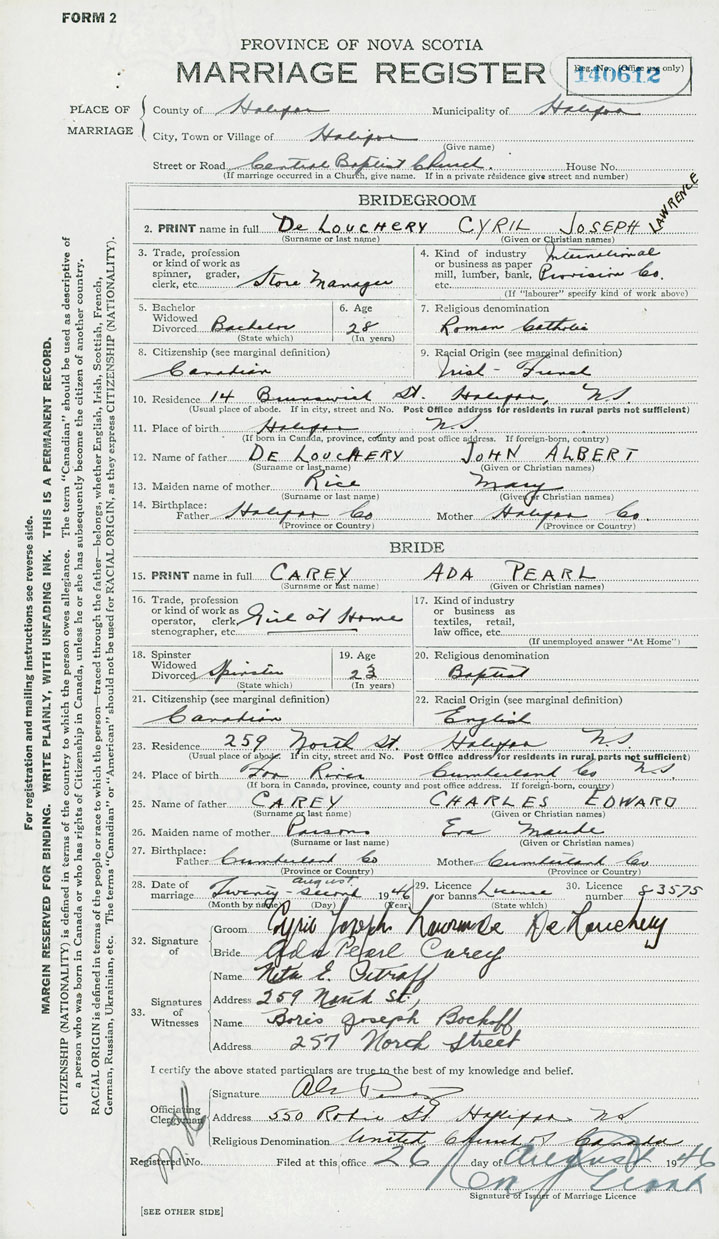 FORM 2
PROVINCE OF NOVA SCOTIA
MARRIAGE REGISTER
Reg. No. (Office use only)
140612
PLACE OF MARRIAGE
County of Halifax Municipality of Halifax
City, Town or Village of Halifax
(Give name)
Street or Road Central Baptist Church. House No.
(If marriage occurred in a Church, give name. If in a private residence give street and number)
BRIDEGROOM
2. PRINT name in full DE LOUCHERY CYRIL JOSEPH LAWRENCE
(Surname or last name) (Given or Christian names)
3. Trade, profession or kind of work as spinner, grader, clerk, etc. Store Manager
4. Kind of industry or business as paper mill, lumber, bank, etc. International Provision Co.
(If "labourer" specify kind of work above)
5. Bachelor Widowed Divorced Bachelor
(State which)
6. Age 28
(In years)
7. Religious denomination
Roman Catholic
8. Citizenship (see marginal definition)
Canadian
9. Racial Origin (see marginal definition)
Irish - French
10. Residence 14 Brunswick St. Halifax, N.S.
(Usual place of abode. If in city, street and No. Post Office address for residents in rural parts not sufficient)
11. Place of birth Halifax N.S.
(If born in Canada, province, county and post office address. If foreign-born, country)
12. Name of father DE LOUCHERY JOHN ALBERT
(Surname or last name) (Given or Christian names)
13. Maiden name of mother Rice Mary
(Surname or last name) (Given or Christian names)
14. Birthplace: Father Halifax Co Mother Halifax Co.
(Province or Country) (Province or Country)
BRIDE
15. PRINT name in full CAREY ADA PEARL
(Surname or last name) (Given or Christian names)
16. Trade, profession or kind of work as operator, clerk, stenographer, etc. Girl at Home
17. Kind of industry or business as textiles, retail, law office, etc.
(If unemployed answer "At Home")
18. Spinster Widowed Divorced Spinster
(State which)
19. Age 23
(In years)
20. Religious denomination
Baptist
21. Citizenship (see marginal definition)
Canadian
22. Racial Origin (see marginal definition)
English
23. Residence 259 North St. Halifax N.S.
(Usual place of abode. If in city, street and No. Post Office address for residents in rural parts not sufficient)
24. Place of birth Fox River Cumberland Co N.S.
(If born in Canada, province, county and post office address. If foreign-born, country)
25. Name of father CAREY CHARLES EDWARD
(Surname or last name) (Given or Christian names)
26. Maiden name of mother Parsons Eva Maude
(Surname or last name) (Given or Christian names)
27. Birthplace: Father Cumberland Co Mother Cumberland Co
(Province or Country) (Province or Country)
28. Date of marriage Twenty-Second August 1946
(Month by name) (Day) (Year)
29. Licence or banns License
(State which)
30. Licence number 83575
32. Signature of
Groom Cyril Joseph Lawrence De Louchery
Bride Ada Pearl Carey
33. Signatures of Witnesses
Name Neta E.
Address 259 North St.,
Name Boris Joseph Bockoff
Address 257 North Street
I certify the above stated particulars are true to the best of my knowledge and belief.
Officiating Clergyman
Signature
Address 550 Robie St Halifax NS
Religious Denomination United Church of Canada
Registered No. Filed at this office 26 day of August 1946
Signature of Issuer of Marriage Licence
[SEE OTHER SIDE]
For registration and mailing instructions see reverse side.
MARGIN RESERVED FOR BINDING. WRITE PLAINLY, WITH UNFADING INK. THIS IS A PERMANENT RECORD.
CITIZENSHIP (NATIONALITY) is defined in terms of the country to which the person owes allegiance. The term "Canadian" should be used as descriptive of
a person who was born in Canada or who has rights of Citizenship in Canada, unless he or she has subsequently become the citizen of another country.
RACIAL ORIGIN is defined in terms of the people or race to which the person—traced through the father—belongs, whether English, Irish, Scottish, French,
German, Russian, Ukrainian, etc. The terms "Canadian" or "American" should not be used for RACIAL ORIGIN, as they express CITIZENSHIP (NATIONALITY).